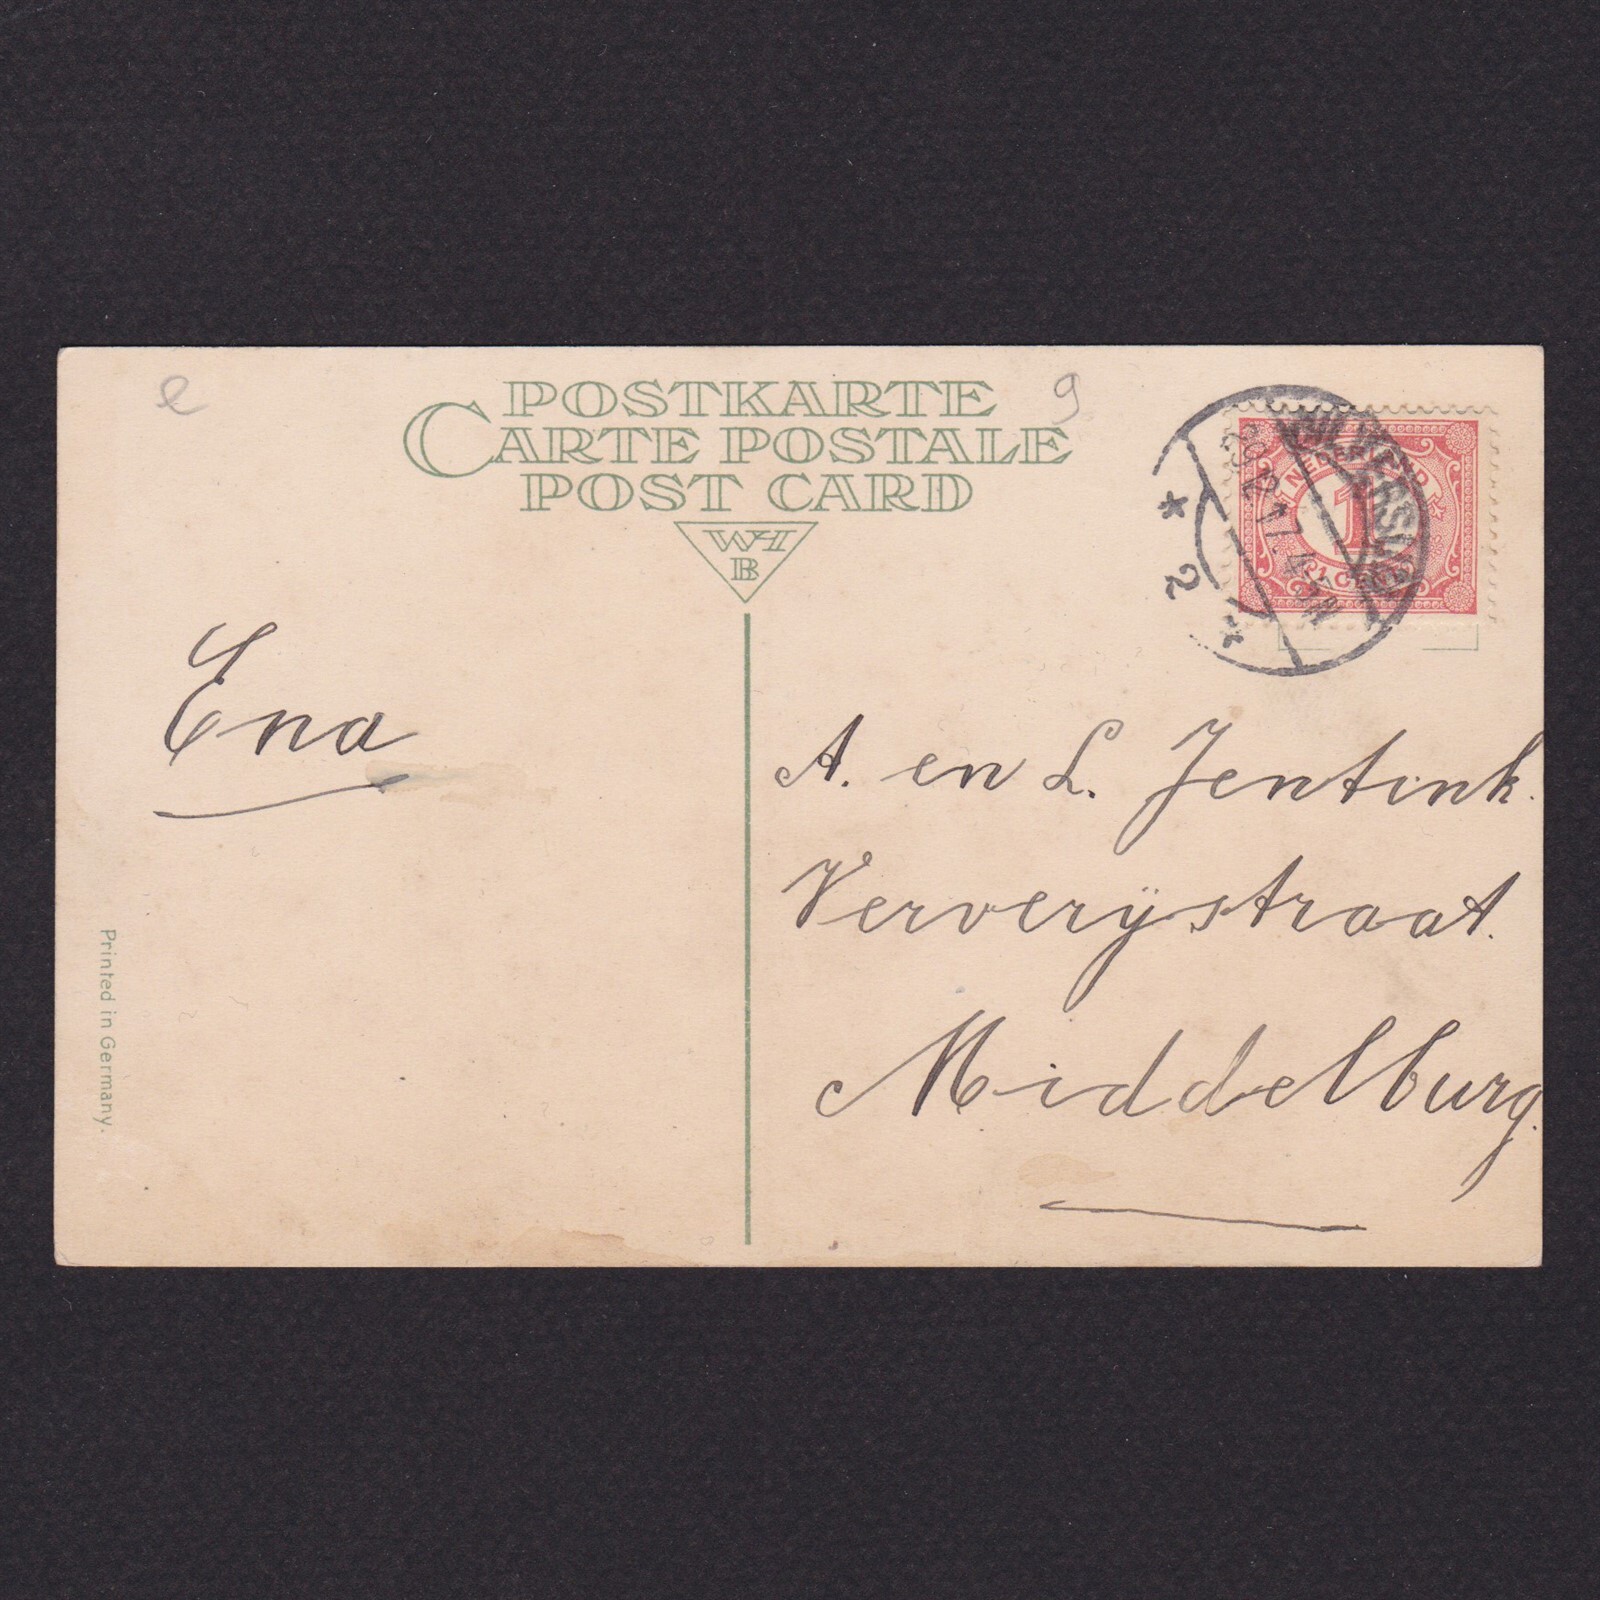 e
9
POSTKARTE
CARTE POSTALE
POST CARD
WHB
NEDERLAND
1
1 CENT
2
Ena
A. en L. Jentink.
Ververijstraat.
Middelburg.
Printed in Germany.